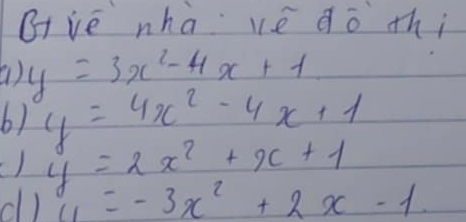 Bt về nhà: vẽ đồ thị
a) y = 3x² - 4x + 1
b) y = 4x² - 4x + 1
c) y = 2x² + x + 1
d) y = -3x² + 2x - 1